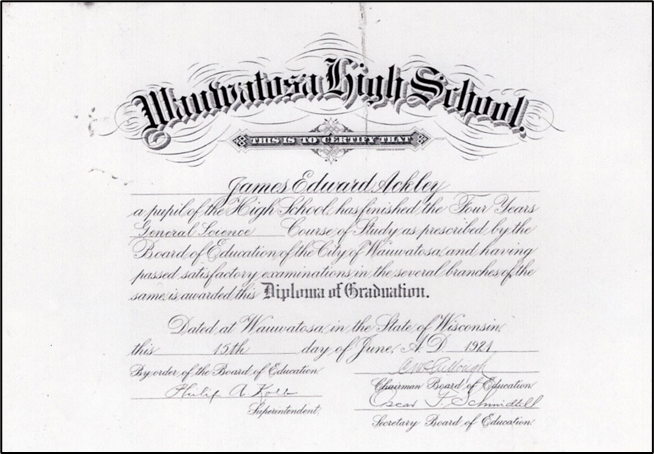 Wauwatosa High School,
THIS IS TO CERTIFY THAT
James Edward Ackley
a pupil of the High School, has finished the Four Years
General Science Course of Study as prescribed by the
Board of Education of the City of Wauwatosa, and having
passed satisfactory examinations in the several branches of the
same is awarded this Diploma of Graduation.
Dated at Wauwatosa, in the State of Wisconsin,
this 15th day of June, A.D. 1921
By order of the Board of Education
Chairman Board of Education
Philip A Kolb
Superintendent
Oscar F Schmidtill
Secretary Board of Education